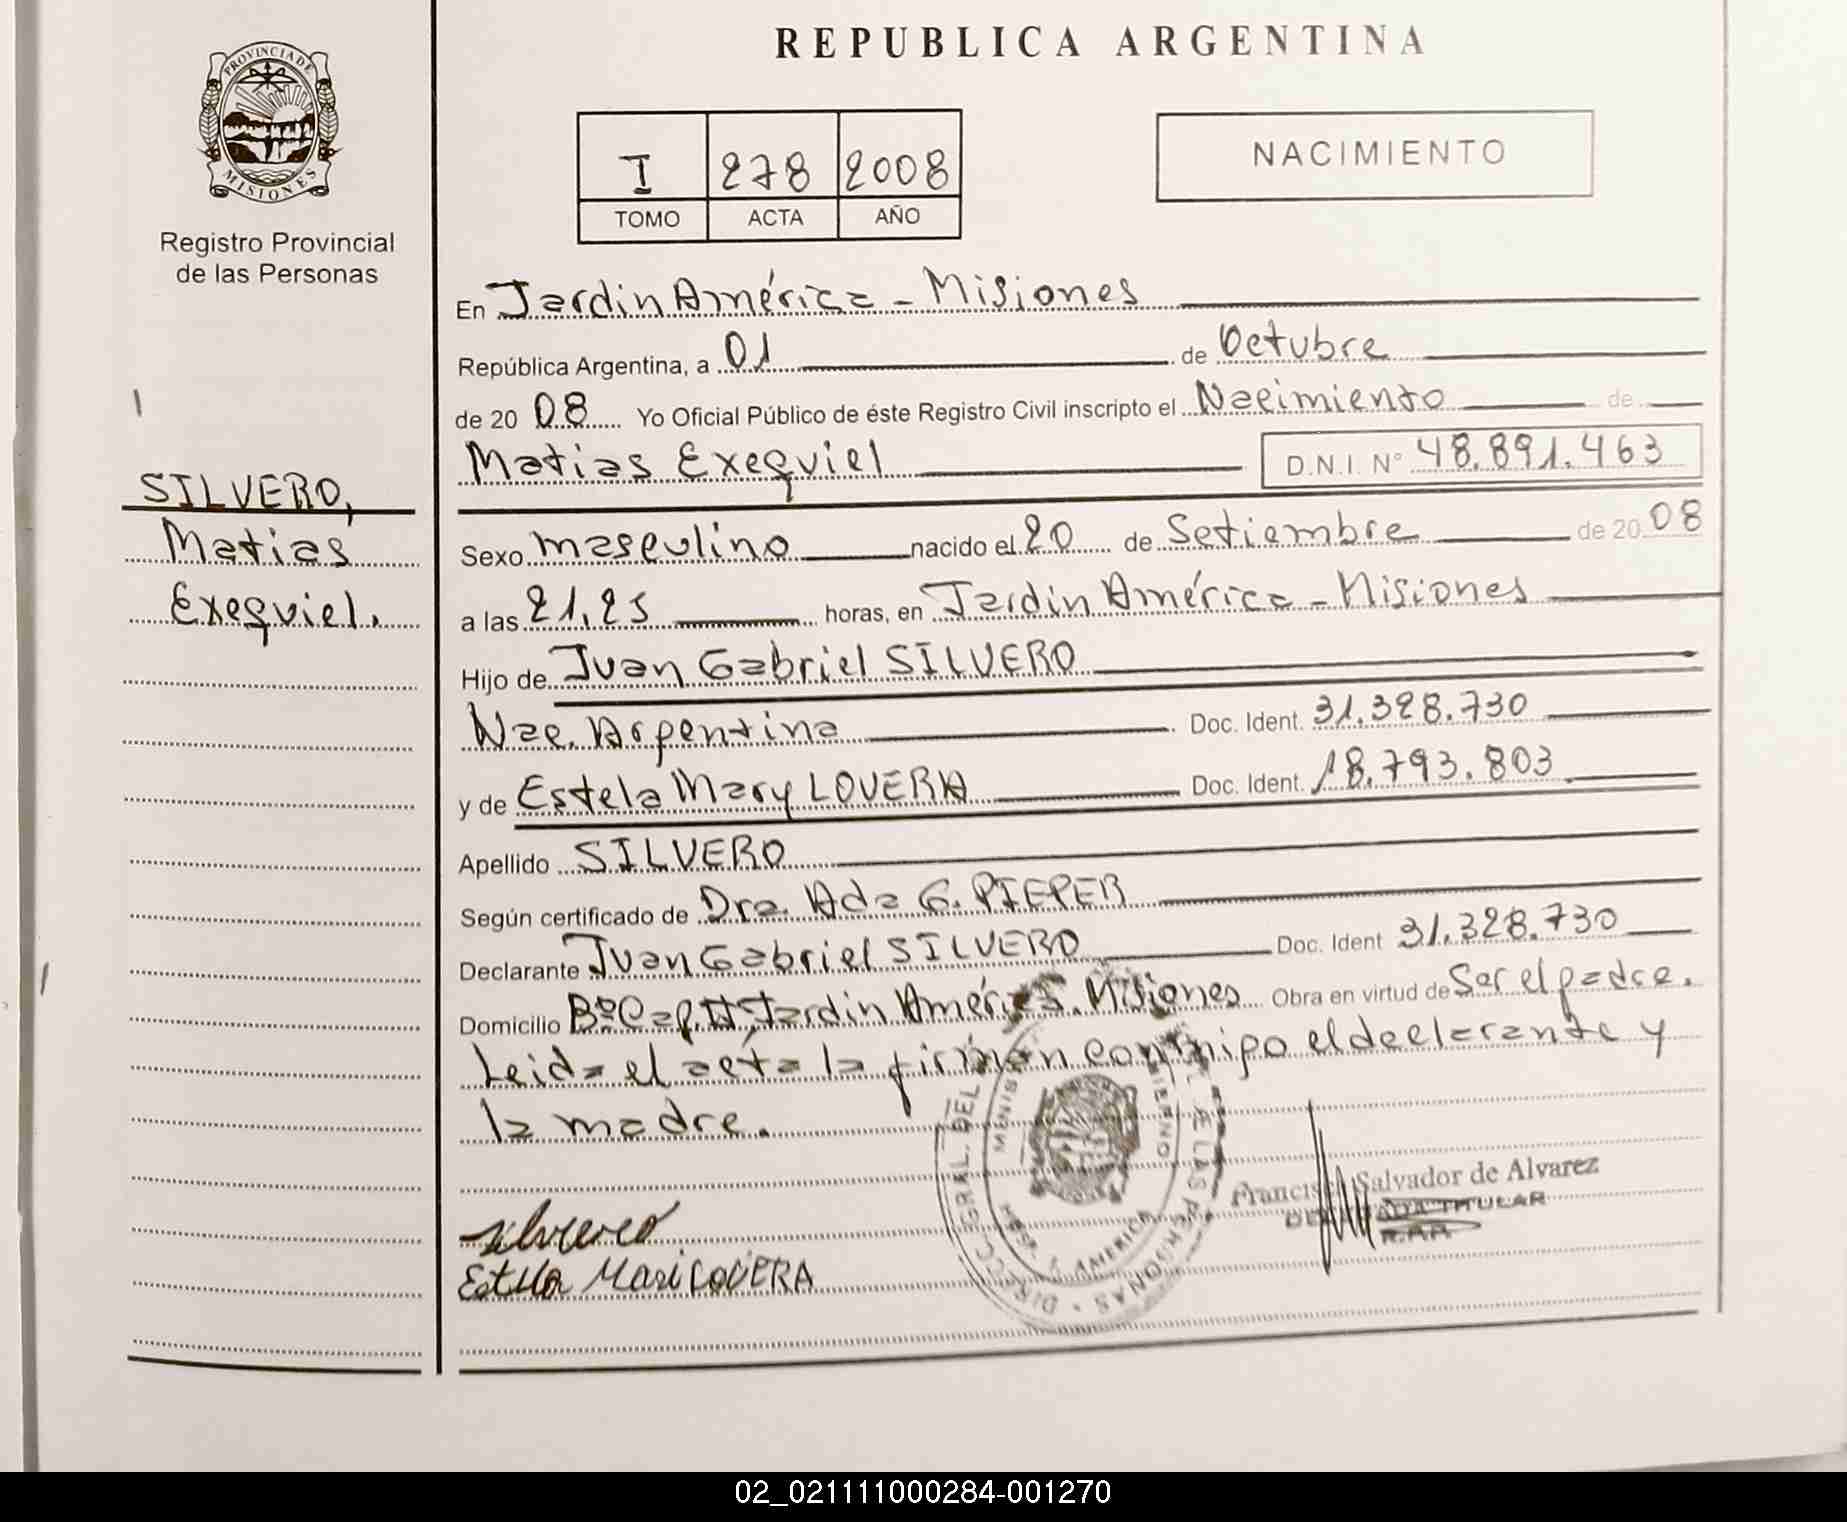 PROVINCIA DE
MISIONES
Registro Provincial
de las Personas
SILVERO,
Matias
Exequiel.
REPUBLICA ARGENTINA
I 278 2008
TOMO ACTA AÑO
NACIMIENTO
En Jardin América - Misiones
República Argentina, a 01 de Octubre
de 20 08 Yo Oficial Público de éste Registro Civil inscripto el Nacimiento de
Matias Exequiel D.N.I. N° 48.891.463
Sexo masculino nacido el 20 de Setiembre de 20 08
a las 21,25 horas, en Jardin América - Misiones
Hijo de Juan Gabriel SILVERO
Nac. Argentina Doc. Ident. 31.328.730
y de Estela Mary LOVERA Doc. Ident. 18.793.803
Apellido SILVERO
Según certificado de Dra. Ada G. PIEPER
Declarante Juan Gabriel SILVERO Doc. Ident 31.328.730
Domicilio Bº Cap. II Jardin América. Misiones Obra en virtud de Ser el padre.
Leida el acta la firman conmigo el declarante y
la madre.
Salvador de Alvarez
TITULAR
Silvero
Estela Mari LOVERA
DIRCC. GRAL. DEL DE LAS PERSONAS
AMERICA
02_021111000284-001270